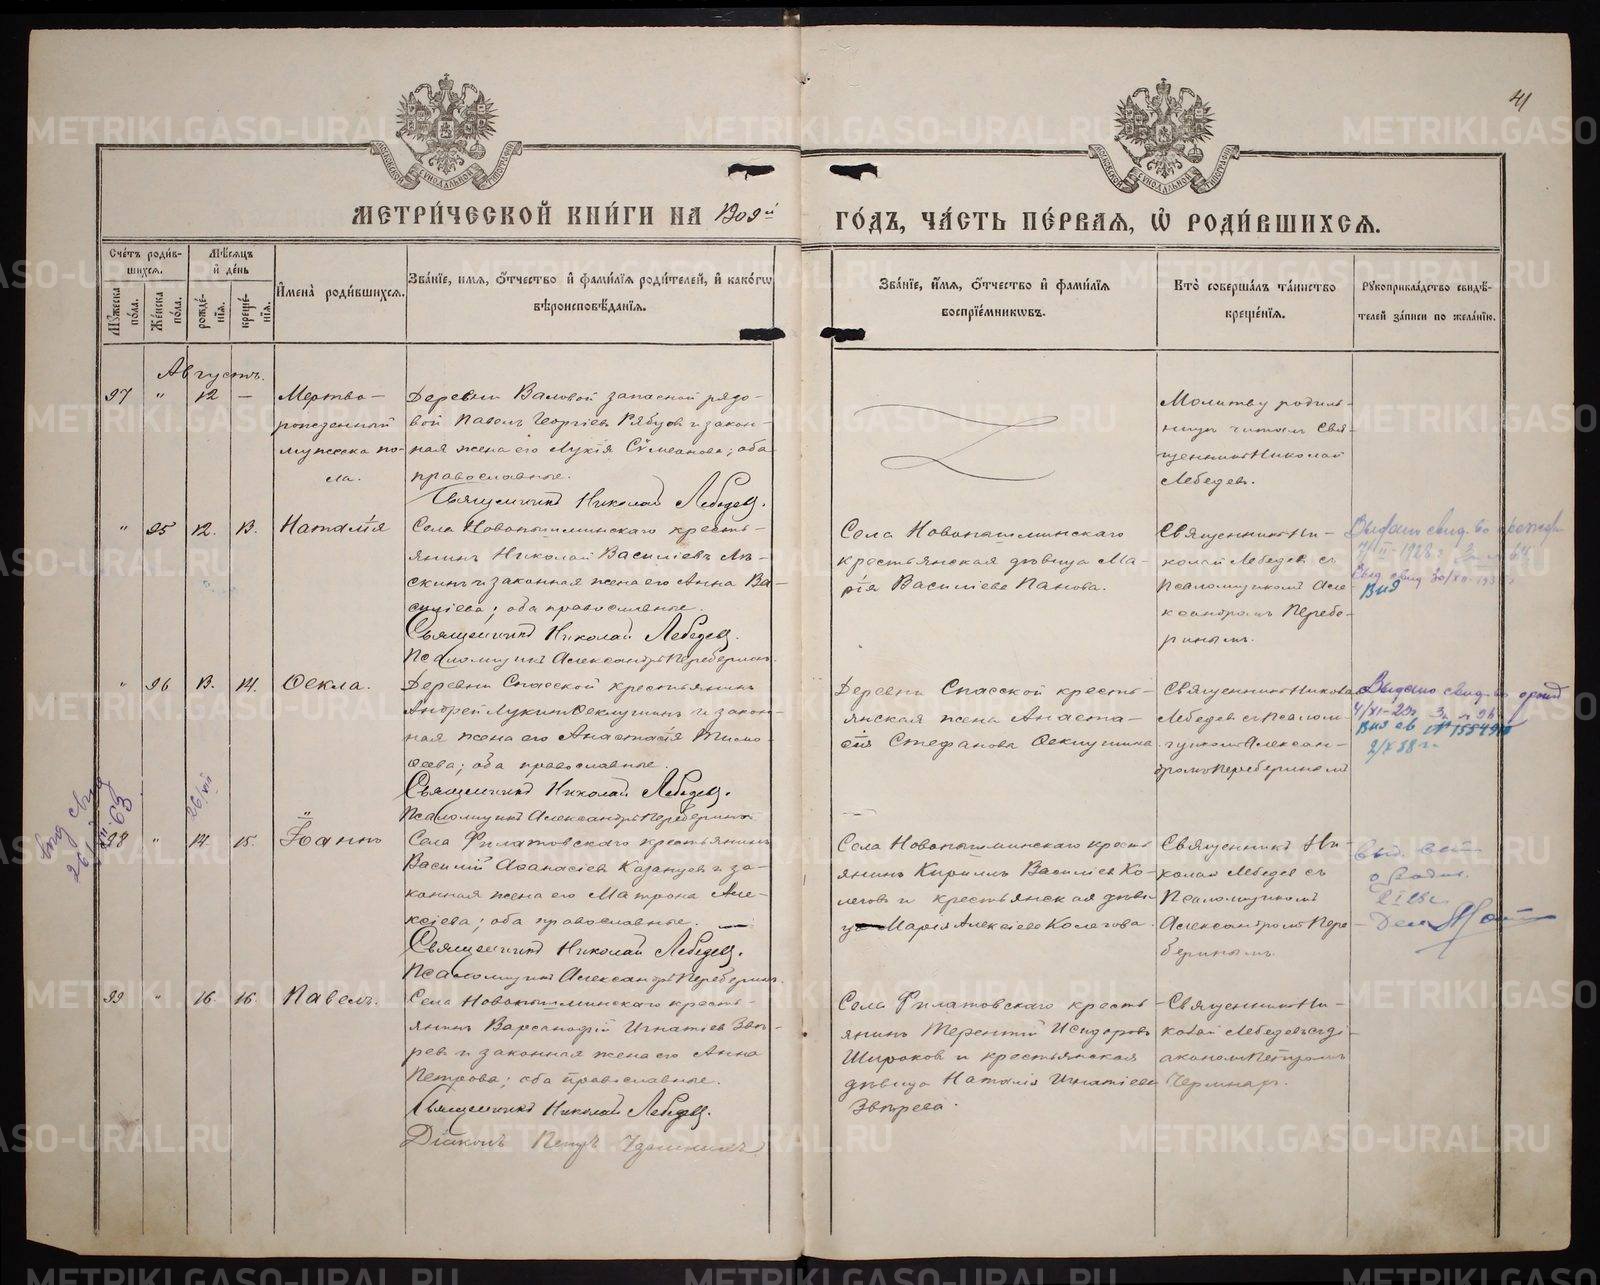 41
МОСКОВСКОЙ СУНОДАЛЬНОЙ ТИПОГРАФІИ
МОСКОВСКОЙ СУНОДАЛЬНОЙ ТИПОГРАФІИ
МЕТРИ́ЧЕСКОЙ КНИ́ГИ НА 1909й ГО́ДЪ, ЧА́СТЬ ПЕ́РВАЯ, Ѡ РОДИ́ВШИХСЯ.
Сче́тъ роди́вшихся.
Му́жеска по́ла.
Же́нска по́ла.
Мѣ́сяцъ и де́нь
рожде́нія.
креще́нія.
Имена̀ роди́вшихся.
Зва́ніе, имя, о́тчество и фами́лія роди́телей, и како́гѡ
вѣроисповѣ́данія.
Зва́ніе, и́мя, о́тчество и фами́лія
воспріе́мникѡвъ.
Кто̀ соверша́лъ та́инство
креще́нія.
Рукоприкла́дство свидѣ́-
телей за́писи по жела́нію.
Августъ.
97 " 12 —
Мертво-
рожденный
мужеска по-
ла.
Деревни Валовой запасной рядо-
вой Павелъ Георгіевъ Рябцов и закон-
ная жена его Лукія Сѵмеонова; оба
православные.
Священникъ Николай Лебедев.
Молитву родиль-
ницы читалъ Свя-
щенникъ Николай
Лебедевъ.
" 95 12. 13. Наталія
Села Новопышминскаго кресть-
янинъ Николай Василіевъ
и законная жена его Анна Ва-
силіева; оба православные.
Священникъ Николай Лебедев.
Псаломщикъ Александръ Переберинъ.
Села Новопышминскаго
крестьянская дѣвица Ма-
рія Василіева Панова.
Священникъ Ни-
колай Лебедевъ съ
Псаломщикомъ Але-
ксандромъ Перебе-
ринымъ.
" 96 13. 14. Ѳекла.
Деревни Спасской крестьянинъ
Андрей Лукинъ Ѳеклушинъ и закон-
ная жена его Анастасія Тимо-
ѳеева; оба православные.
Священникъ Николай Лебедев.
Псаломщикъ Александръ Переберинъ
Деревни Спасской кресть-
янская жена Анаста-
сія Стефанова Ѳеклушина
Священникъ Никола
Лебедев съ Псалом-
щикомъ Алексан-
дромъ Переберинымъ
Выдано свид-во
98 " 14. 15. Іоаннъ
Села Филатовскаго крестьянинъ
Василій Аѳанасіевъ Казанцевъ и за-
конная жена его Матрона Але-
ксіева; оба православные.
Священникъ Николай Лебедев.
Псаломщикъ Александръ Переберинъ
Села Новопышминскаго кресть
янинъ Кириллъ Василіевъ Ко-
легов и крестьянская дѣви
ца Марія Алексіева Колегова.
Священникъ Ни-
колай Лебедев съ
Псаломщикомъ
Александромъ Пере-
беринымъ.
99 " 16. 16. Павелъ.
Села Новопышминскаго кресть-
янинъ Варсанофій Игнатіев Звѣ-
рев и законная жена его Анна
Петрова; оба православные.
Священникъ Николай Лебедев.
Діаконъ Петръ
Села Филатовскаго кресть
янинъ Терентій Исидоровъ
Широков и крестьянская
дѣвица Наталія Игнатіева
Звѣрева.
Священникъ Ни-
колай Лебедевъ съ ді-
акономъ Петромъ